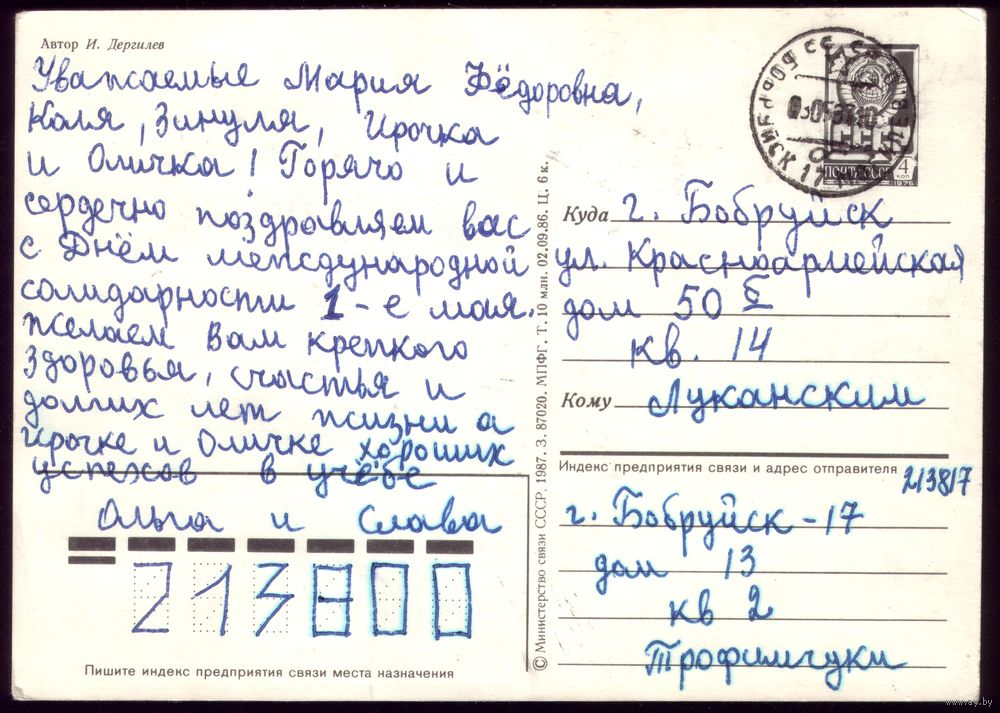 Автор И. Дергилев
Уважаемые Мария Фёдоровна,
Коля, Зинуля, Ирочка
и Оличка! Горячо и
сердечно поздравляем вас
с Днём международной
солидарности 1-е мая.
Желаем Вам крепкого
здоровья, счастья и
долгих лет жизни а
Ирочке и Оличке хороших
успехов в учёбе
Ольга и Слава
213800
Пишите индекс предприятия связи места назначения
© Министерство связи СССР. 1987. З. 87020. МПФГ. Т. 10 млн. 02.09.86. Ц. 6 к.
ПОЧТА СССР 4 КОП
1976
Куда г. Бобруйск
ул. Красноармейская
дом 50 Б
кв. 14
Кому Луканским
Индекс предприятия связи и адрес отправителя
213817
г. Бобруйск-17
дом 13
кв 2
Трофимчуки
www.ay.by